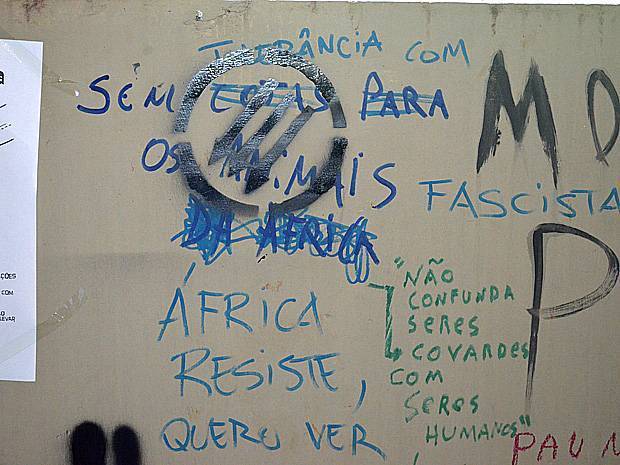 TOLERÂNCIA COM
SEM COTAS PARA
OS ANIMAIS
DA ÁFRICA
MO
FASCISTA
P
ÁFRICA
RESISTE,
QUERO VER
"NÃO
CONFUNDA
SERES
COVARDES
COM
SERES
HUMANOS"
PAU
a
ÇÕES
COM
LEVAR